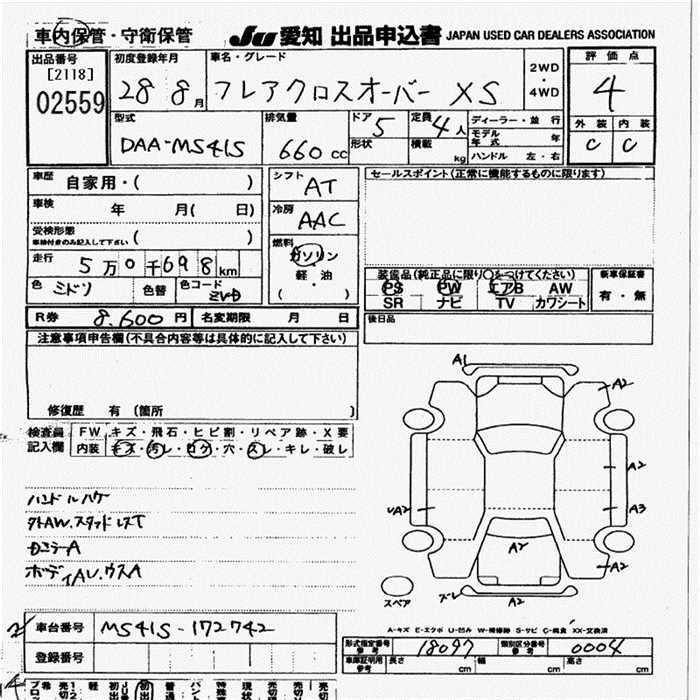 車内保管・守衛保管
JU 愛知 出品申込書 JAPAN USED CAR DEALERS ASSOCIATION
出品番号
[2118]
02559
初度登録年月
28 8月
車名・グレード
フレアクロスオーバー XS
2WD
・
4WD
評価点
4
型式
DAA-MS41S
排気量
660cc
ドア 5
形状
定員 4人
積載 kg
ディーラー・並行
モデル年式 年
ハンドル 左・右
外装 内装
C C
車歴 自家用・( )
車検 年 月( 日)
受検形態
車検付きのみ記入して下さい ( )
走行 5万0千698km
色 ミドリ 色替 色コード
シフト AT
冷房 AAC
燃料
ガソリン
・
軽油
( )
セールスポイント(正常に機能するものに限ります)
装備品(純正品に限り○をつけてください)
PS PW エアB AW
SR ナビ TV カワシート
新車保証書
有・無
R券 8,600円 名変期限 月 日
後日品
注意事項申告欄(不具合内容等は具体的に記入して下さい)
修復歴 有(箇所 )
検査員記入欄
FW キズ・飛石・ヒビ割・リペア跡・X要
内装 キズ・汚レ・コゲ・穴・スレ・キレ・破レ
ハンドルハゲ
外AW.スタッドレスT
ボディAU.ウスA
A1
A2
A2
A3
A2
A2
A2
A2
スペア
A-キズ E-エクボ U-凹み W-補修跡 S-サビ C-腐食 XX-交換済
車台番号 MS41S-172742
登録番号
形式指定番号 参考 18097
類別区分番号 参考 0004
車庫証明用 参考 長さ cm 幅 cm 高さ cm